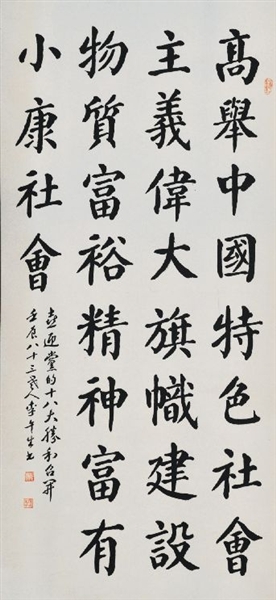 高舉中國特色社會
主義偉大旗幟建設
物質富裕精神富有
小康社會
喜迎黨的十八大勝利召開
壬辰八十三叟人李午生書